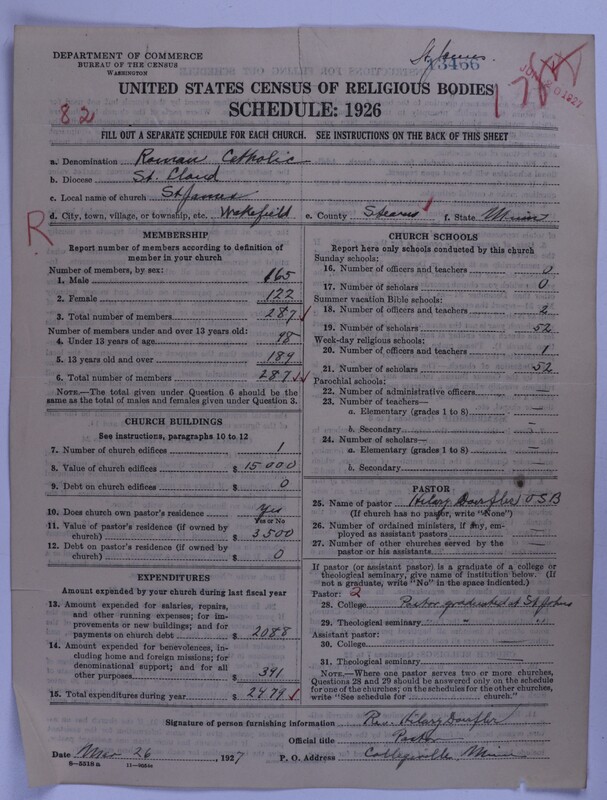 St. James.
DEPARTMENT OF COMMERCE
BUREAU OF THE CENSUS
WASHINGTON
13466
1927
UNITED STATES CENSUS OF RELIGIOUS BODIES
178
SCHEDULE: 1926
82
FILL OUT A SEPARATE SCHEDULE FOR EACH CHURCH. SEE INSTRUCTIONS ON THE BACK OF THIS SHEET
a. Denomination Roman Catholic
b. Diocese St. Cloud
c. Local name of church St James
d. City, town, village, or township, etc. Wakefield e. County Stearns f. State Minn
R
MEMBERSHIP
Report number of members according to definition of
member in your church
Number of members, by sex:
1. Male 165
2. Female 122
3. Total number of members 287
Number of members under and over 13 years old:
4. Under 13 years of age 98
5. 13 years old and over 189
6. Total number of members 287
NOTE.—The total given under Question 6 should be
same as the total of males and females given under Question 3.
CHURCH BUILDINGS
See instructions, paragraphs 10 to 12
7. Number of church edifices 1
8. Value of church edifices $ 15000
9. Debt on church edifices $ 0
10. Does church own pastor's residence? Yes
Yes or No
11. Value of pastor's residence (if owned by
church) $ 3500
12. Debt on pastor's residence (if owned by
church) $ 0
EXPENDITURES
Amount expended by your church during last fiscal year
13. Amount expended for salaries, repairs,
and other running expenses; for im-
provements or new buildings; and for
payments on church debt $ 2088
14. Amount expended for benevolences,
including home and foreign missions; for
denominational support; and for all
other purposes $ 391
15. Total expenditures during year $ 2479
CHURCH SCHOOLS
Report here only schools conducted by this church
Sunday schools:
16. Number of officers and teachers 0
17. Number of scholars 0
Summer vacation Bible schools:
18. Number of officers and teachers 2
19. Number of scholars 52
Week-day religious schools:
20. Number of officers and teachers 1
21. Number of scholars 52
Parochial schools:
22. Number of administrative officers —
23. Number of teachers—
a. Elementary (grades 1 to 8) —
b. Secondary —
24. Number of scholars—
a. Elementary (grades 1 to 8) —
b. Secondary —
PASTOR
25. Name of pastor Hilary Doerfler OSB
(If church has no pastor, write "None")
26. Number of ordained ministers, if any, em-
ployed as assistant pastors —
27. Number of other churches served by the
pastor or his assistants —
If pastor (or assistant pastor) is a graduate of a college or
theological seminary, give name of institution below. (If
not a graduate, write "No" in the space indicated.)
Pastor: 2
28. College Pastor graduated at St Johns
29. Theological seminary " "
Assistant pastor:
30. College
31. Theological seminary
NOTE.—Where one pastor serves two or more churches,
Questions 28 and 29 should be answered only on the schedule
for one of the churches; on the schedules for the other churches,
write "See schedule for church."
Signature of person furnishing information Rev. Hilary Doerfler
Official title Pastor
Date Mar 26, 1927 P. O. Address Collegeville Minn
8—5518a